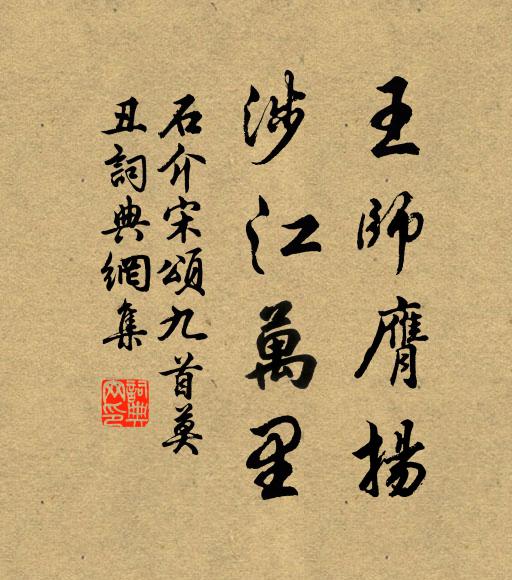 王師膺揚
涉江萬里
石介宋頌九首莫
丑詞典網集
詞典
网印